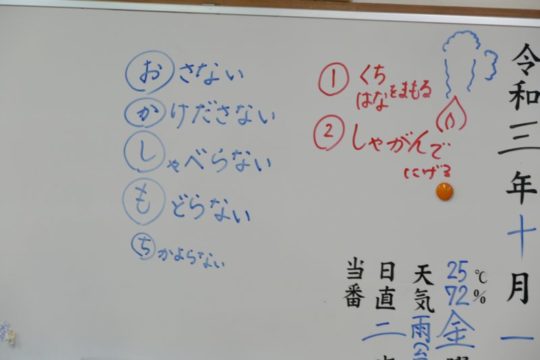 おさない
かけださない
しゃべらない
もどらない
ちかよらない
① くち
はなをまもる
② しゃがんで
にげる
令和三年十月一
25℃
72%
金
天気 雨
日直 二
当番